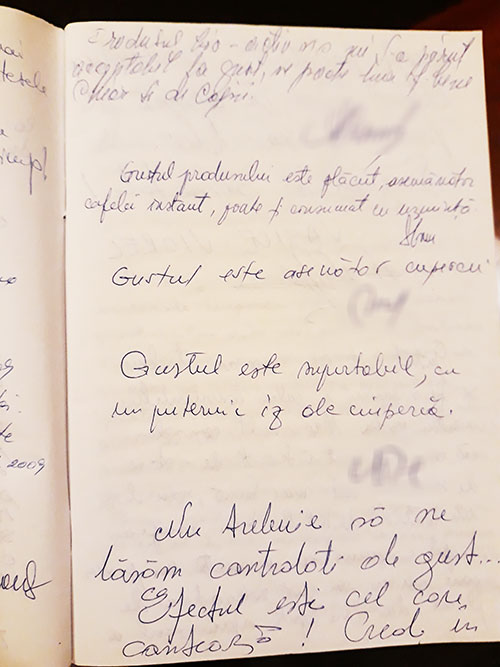 Produsul bio-activ ms mi s-a părut
acceptabil la gust, se poate lua f bine
chiar și de copii.
Gustul produsului este plăcut, asemănător
cafelei instant, poate fi consumat cu ușurință.
Gustul este asemător cupercii
Gustul este suportabil, cu
un puternic iz de ciupercă.
Nu trebuie să ne
lăsăm controlati de gust...
Efectul este cel care
contează! Cred în
2009